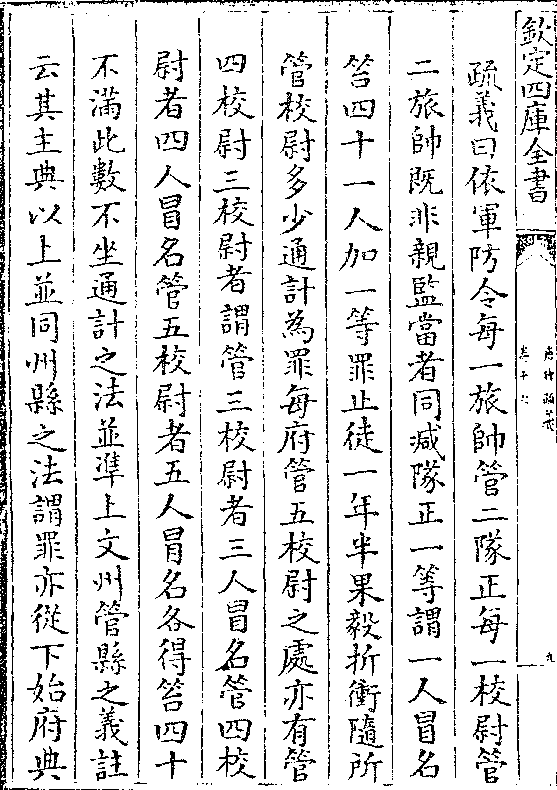 欽定四庫全書
疏義曰依軍防令每一旅帥管二隊正每一校尉管
二旅帥既非親監當者同減隊正一等謂一人冒名
笞四十一人加一等罪止徒一年半果毅折衝隨所
管校尉多少通計為罪每府管五校尉之處亦有管
四校尉三校尉者謂管三校尉者三人冒名管四校
尉者四人冒名管五校尉者五人冒名各得笞四十
不滿此數不坐通計之法並準上文州管縣之義註
云其主典以上並同州縣之法謂罪亦從下始府典
九